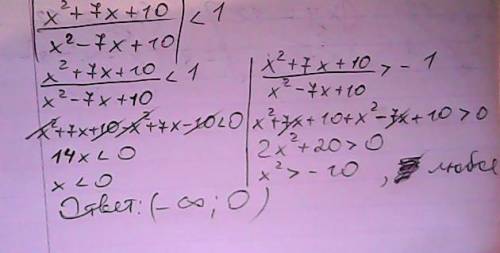 |x²+7x+10 / x²-7x+10| < 1
x²+7x+10 / x²-7x+10 < 1
x²+7x+10-x²+7x-10<0
14x<0
x<0
x²+7x+10 / x²-7x+10 > -1
x²+7x+10+x²-7x+10>0
2x²+20>0
x²>-10, любое
Ответ: (-∞; 0)